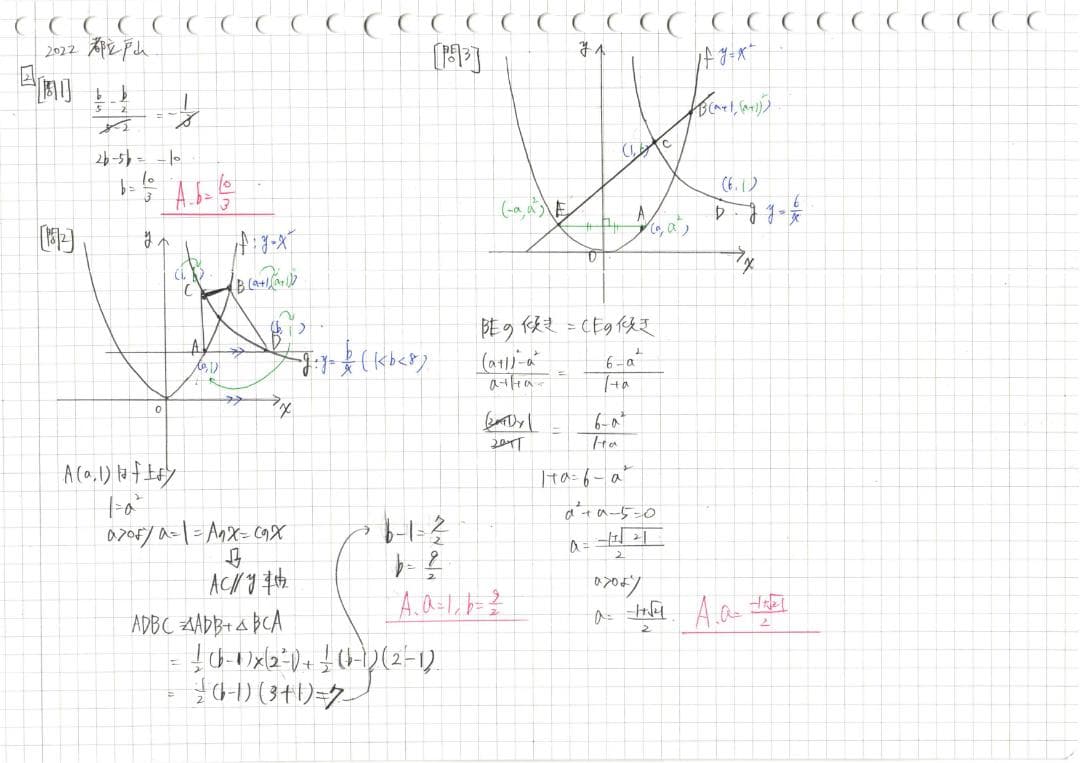 2022 都立戸山
2
[問1]
b/5 - b/2 / 5-2 = -1/3
2b-5b = -10
b = 10/3
A. b = 10/3
[問2]
y
f: y=x²
(1, b)
C
B(a+1, (a+1)²)
(b, 1)
A
D
(a,1)
g: y = b/x (1<b<8)
O
x
A(a,1)はf上より
1=a²
a>0より a=1=Aのx=Cのx
⇓
AC // y軸
ADBC = △ADB+△BCA
= 1/2 (b-1)×(2²-1) + 1/2 (b-1)(2-1)
= 1/2 (b-1)(3+1)=7
b-1 = 7/2
b = 9/2
A. a=1, b=9/2
[問3]
y
f y=x²
B(a+1, (a+1)²)
(1, 6)
C
(6,1)
(-a, a²)
E
A
(a, a²)
D
g y=6/x
O
x
BEの傾き = CEの傾き
(a+1)²-a² / a+1+a = 6-a² / 1+a
(2a+1)×1 / 2a+1 = 6-a² / 1+a
1+a=6-a²
a²+a-5=0
a = -1±√21 / 2
a>0より
a = -1+√21 / 2
A. a = -1+√21 / 2